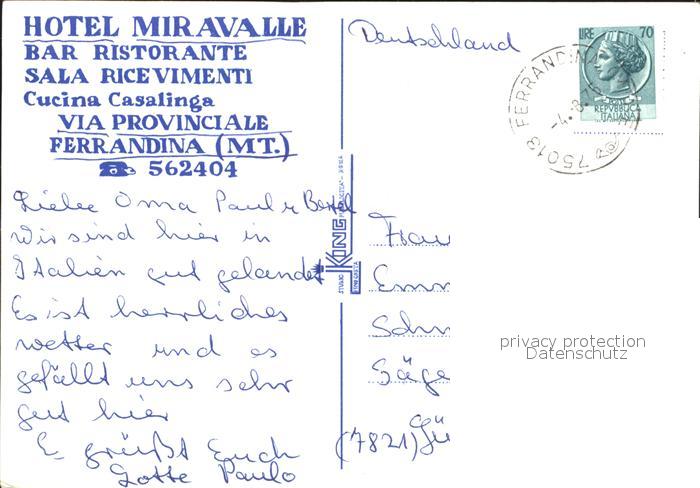 HOTEL MIRAVALLE
BAR RISTORANTE
SALA RICEVIMENTI
Cucina Casalinga
VIA PROVINCIALE
FERRANDINA (MT.)
☎ 562404
Liebe Oma Paul u
wir sind hier in
Italien gut gelandet
Es ist herrliches
wetter und es
gefällt uns sehr
gut hier
Es grüßt Euch
Gotte Paulo
KING
Deutschland
LIRE 70
REPVBBLICA
ITALIANA
75013 FERRANDINA
-4.8.
Frau
Emm
Schm
Säge
(7821) Gü
privacy protection
Datenschutz